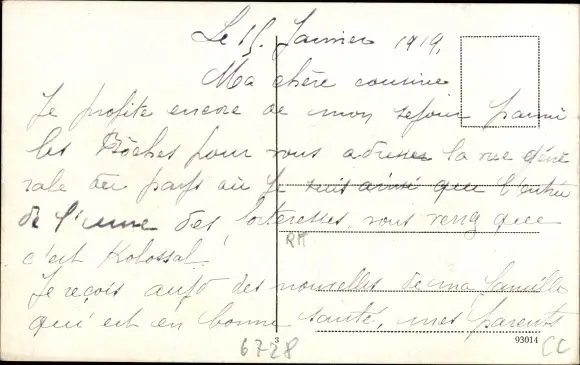 Le 15 Janvier 1919,
Ma chère cousine
Je profite encore de mon sejour parmi
les Bôches pour vous adresser la vue géné
rale du pays où je suis ainsi que l'entrée
de l'une des forteresses, vous verrez que
c'est Kolossal.
Je reçois aujd des nouvelles de ma famille
qui est en bonne santé, mes parents
RM
3
93014
6728
CC